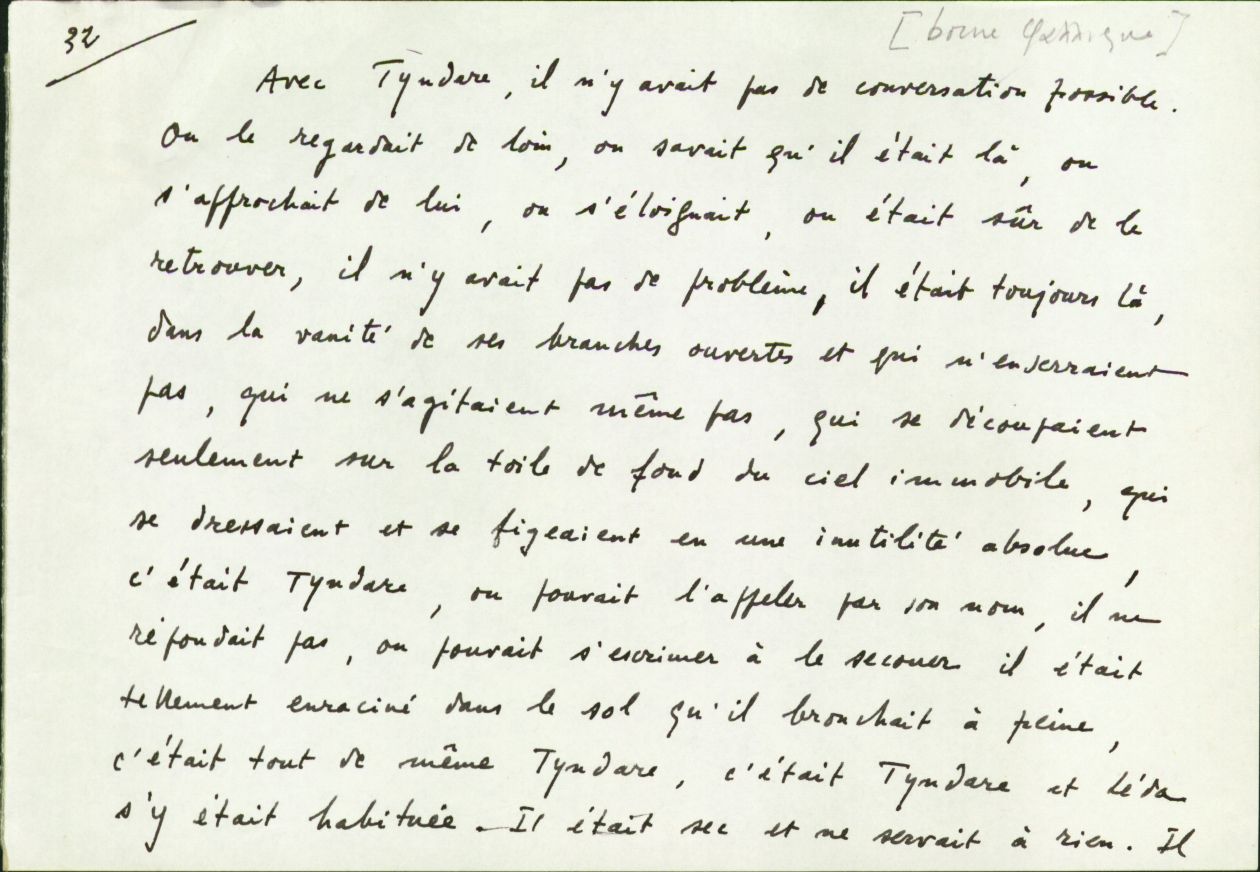 32
[borne
Avec Tyndare, il n'y avait pas de conversation possible.
On le regardait de loin, on savait qu'il était là, on
s'approchait de lui, on s'éloignait, on était sûr de le
retrouver, il n'y avait pas de problème, il était toujours là,
dans la vanité de ses branches ouvertes et qui n'enserraient
pas, qui ne s'agitaient même pas, qui se découpaient
seulement sur la toile de fond du ciel immobile, qui
se dressaient et se figeaient en une inutilité absolue,
c'était Tyndare, on pouvait l'appeler par son nom, il ne
répondait pas, on pouvait s'escrimer à le secouer il était
tellement enraciné dans le sol qu'il bronchait à peine,
c'était tout de même Tyndare, c'était Tyndare et Léda
s'y était habituée. Il était sec et ne servait à rien. Il